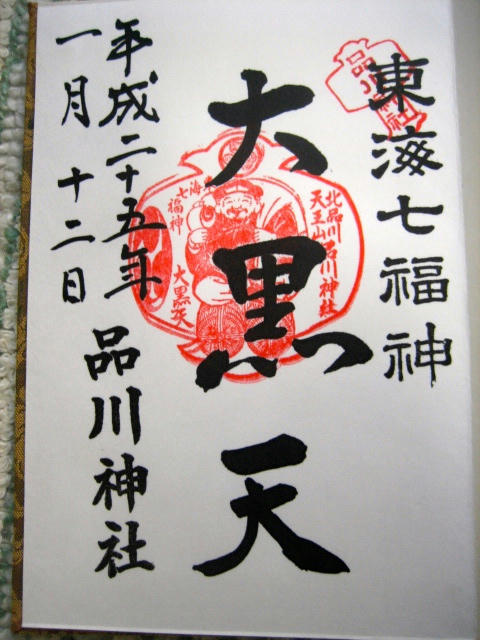 東海七福神
大黒天
平成二十五年
一月十二日
品川神社
北品川
天王山
品川神社
東海
七福神
大黒天